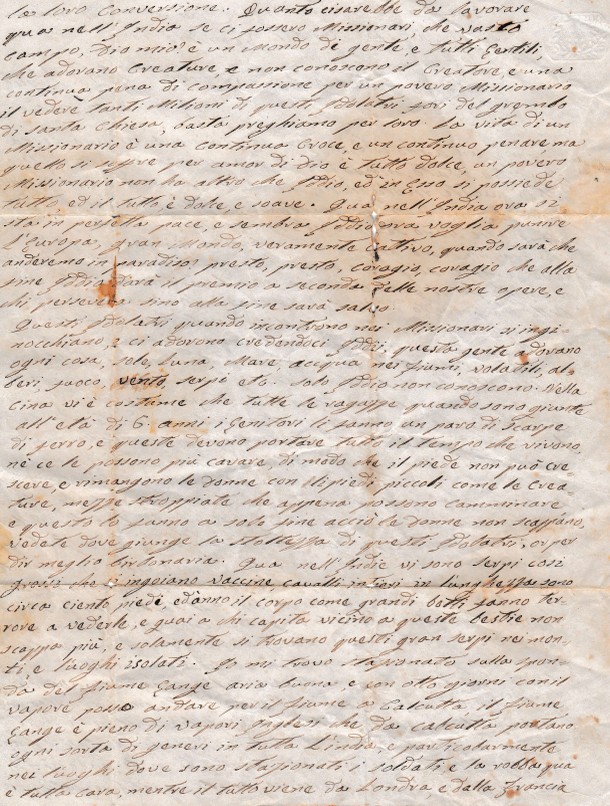 la loro Conversione. Quanto ci sarebbe da lavorare
qua nell'India se ci fossero Missionari, che vasto
campo, Dio mio, è un Mondo di gente, e tutti Gentili,
che adorano Creature, e non conoscono il Creatore, e una
continua pena di compassione per un povero Missionario
il vedere tanti Milioni di questi Idolatri fori del grembo
di santa Chiesa, basta preghiamo per loro. La vita di un
Missionario è una continua Croce, e un continuo penare ma
quello si soffre per amor di Dio è tutto dolce, un povero
Missionario non ha altro che Iddio, ed in Esso si possiede
tutto ed il tutto è dolce e soave. Qua nell'India ora si
sta in perfetta pace, e sembra Iddio ora voglia punire
l'Europa, gran Mondo, veramente Cattivo, quando sarà che
anderemo in paradiso? presto, presto, coragio, coragio che alla
fine Iddio darà il premio a seconda delle nostre opere, e
chi persevera sino alla fine sarà salvo.
Questi Idolatri quando incontrono noi Missionari si ingi-
nocchiano, e ci adorono credendoci Iddii, questa gente adorano
ogni cosa, sole, luna, Mare, acqua nei fiumi, volatili, al-
beri, fuoco, vento, serpi etc. solo Iddio non conoscono. Nella
Cina vi è costume che tutte le ragazze quando sono giunte
all'età di 6 anni i Genitori li fanno un paro di scarpe
di ferro, e queste devono portare tutto il tempo che vivono,
nè ce le possono più cavare, di modo che il piede non può cre-
scere e rimangono le donne con li piedi piccoli come le Crea-
ture, mezze stroppiate che appena possono camminare
e questo lo fanno a solo fine acciò le donne non scappano,
vedete dove giunge la stoltezza di questi Idolatri, o per
dir meglio birbonaria. Qua nell'Indie vi sono serpi così
grossi che ingoiano vaccine, cavalli intieri in lunghezza sono
circa ciento piedi, ed ànno il corpo come grandi botti, fanno ter-
rore a vederle, e guai a chi capita vicino a queste bestie non
scappa più, e solamente si trovano questi gran serpi nei mon-
ti, e luoghi isolati. Io mi trovo stazionato sulla spon-
da del fiume Gange aria buona, e con otto giorni con il
vapore posso andare per il fiume a Calcutta, il fiume
Gange è pieno di vapori Inglesi che da Calcutta portano
ogni sorta di generi in tutta l'India, e particolarmente
nei luoghi dove sono stazionati i soldati, e la robba qua
è tutta cara, mentre il tutto viene da Londra e dalla Francia